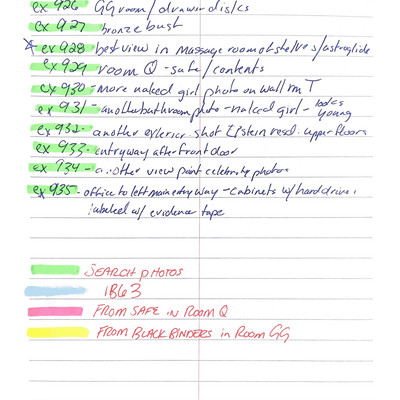 ex 926 GG room / drawer discs
ex 927 bronze bust
☆ ex 928 best view in massage room of shelves/astroglide
ex 929 room Q - safe / contents
ex 930 - more naked girl photo on wall rm T
ex 931 - another bathroom photo - naked girl - looks young
ex 932 - another exterior shot Epstein resd. upper floors
ex 933 - entryway after front door
ex 934 - another view point celebrity photos
ex 935 - office to left main entry way - cabinets w/ hard drives
labeled w/ evidence tape
SEARCH PHOTOS
1B63
FROM SAFE in ROOM Q
FROM BLACK BINDERS in ROOM GG